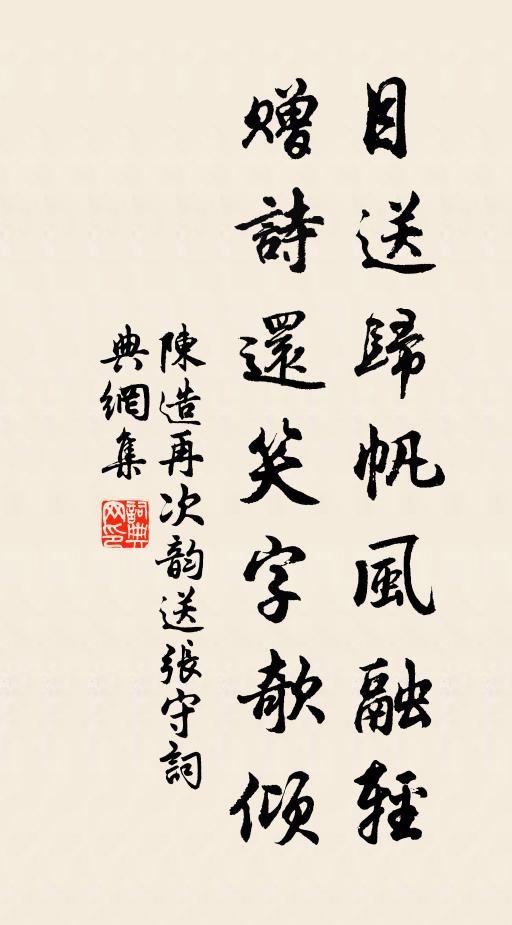 目送歸帆風融輕
贈詩還笑字欹傾
陳造再次韵送張守詞
典網集
詞典网印